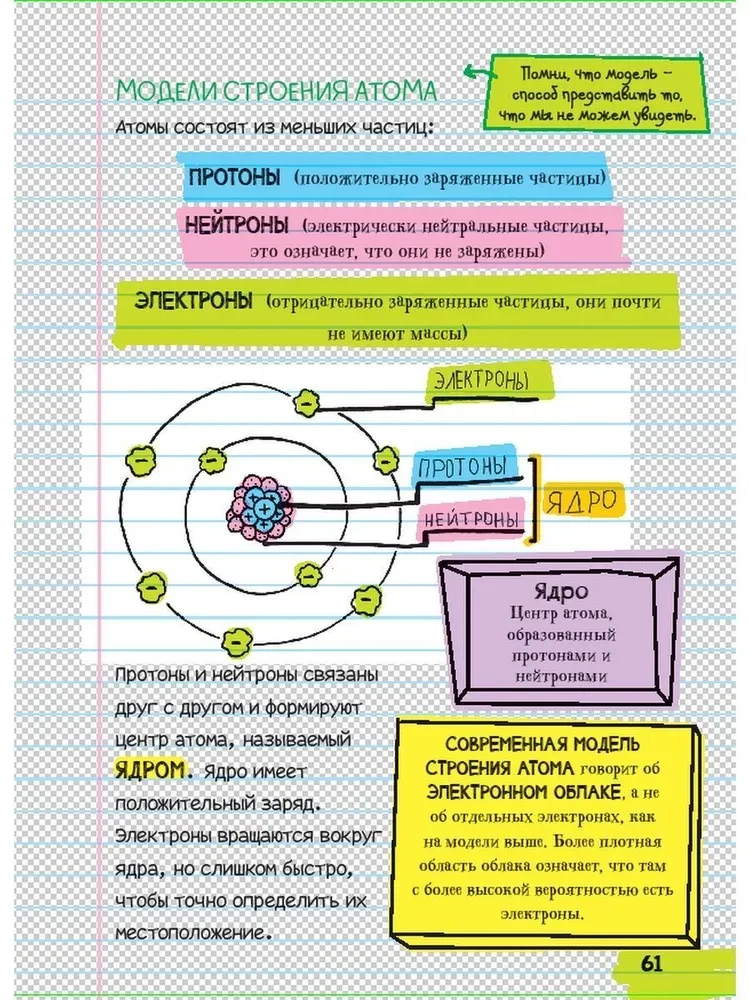 Помни, что модель –
способ представить то,
что мы не можем увидеть.
МОДЕЛИ СТРОЕНИЯ АТОМА
Атомы состоят из меньших частиц:
ПРОТОНЫ (положительно заряженные частицы)
НЕЙТРОНЫ (электрически нейтральные частицы,
это означает, что они не заряжены)
ЭЛЕКТРОНЫ (отрицательно заряженные частицы, они почти
не имеют массы)
ЭЛЕКТРОНЫ
ПРОТОНЫ
НЕЙТРОНЫ
ЯДРО
Ядро
Центр атома,
образованный
протонами и
нейтронами
Протоны и нейтроны связаны
друг с другом и формируют
центр атома, называемый
ЯДРОМ. Ядро имеет
положительный заряд.
Электроны вращаются вокруг
ядра, но слишком быстро,
чтобы точно определить их
местоположение.
СОВРЕМЕННАЯ МОДЕЛЬ
СТРОЕНИЯ АТОМА говорит об
ЭЛЕКТРОННОМ ОБЛАКЕ, а не
об отдельных электронах, как
на модели выше. Более плотная
область облака означает, что там
с более высокой вероятностью есть
электроны.
61